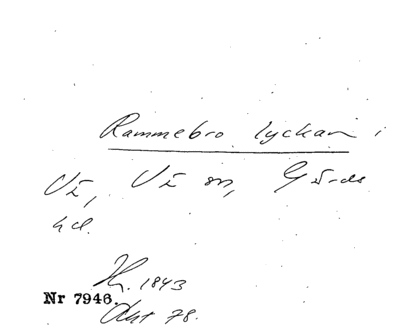 Rammebro lyckan i
Vä, Vä sn, Gärds
hd.
Hr. 1843
Nr 7946.
Akt 78.